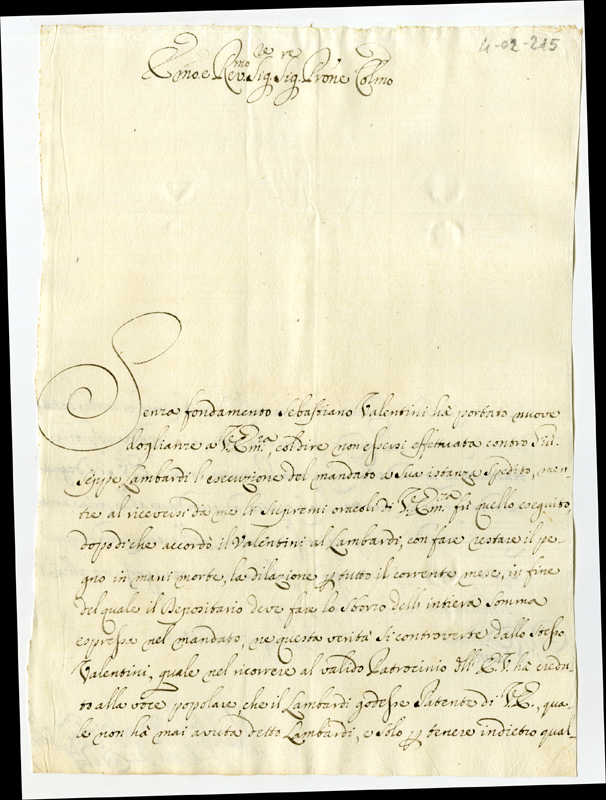 4-02-215
Em͠o. e Rev.mo Sig.re Sig.re Pron͠e Col͠mo
Senza fondamento Sebastiano Valentini hà portato nuove
doglianze a V. Em.za, col dire non essersi effettuata contro Giu-
seppe Lambardi l'esecuzione del mandato a Sua istanza Spedito, men-
tre al riceversi da me li Supremi oracoli di V. Em.za fù quello eseguito,
dopo di che accordò il Valentini al Lambardi, con fare restare il pe-
gno in mani morte, la dilazione p tutto il corrente mese, in fine
del quale il Depositario deve fare lo Sborzo dell'intiera Somma
espressa nel mandato, ne questa verità Si controverte dallo Stesso
Valentini, quale nel ricorrere al valido Patrocinio dll' E. V. hà credu-
to alla voce popolare, che il Lambardi godesse Patente di V. E., qua-
le non hà mai avuta detto Lambardi, e Solo p tenere indietro qual-